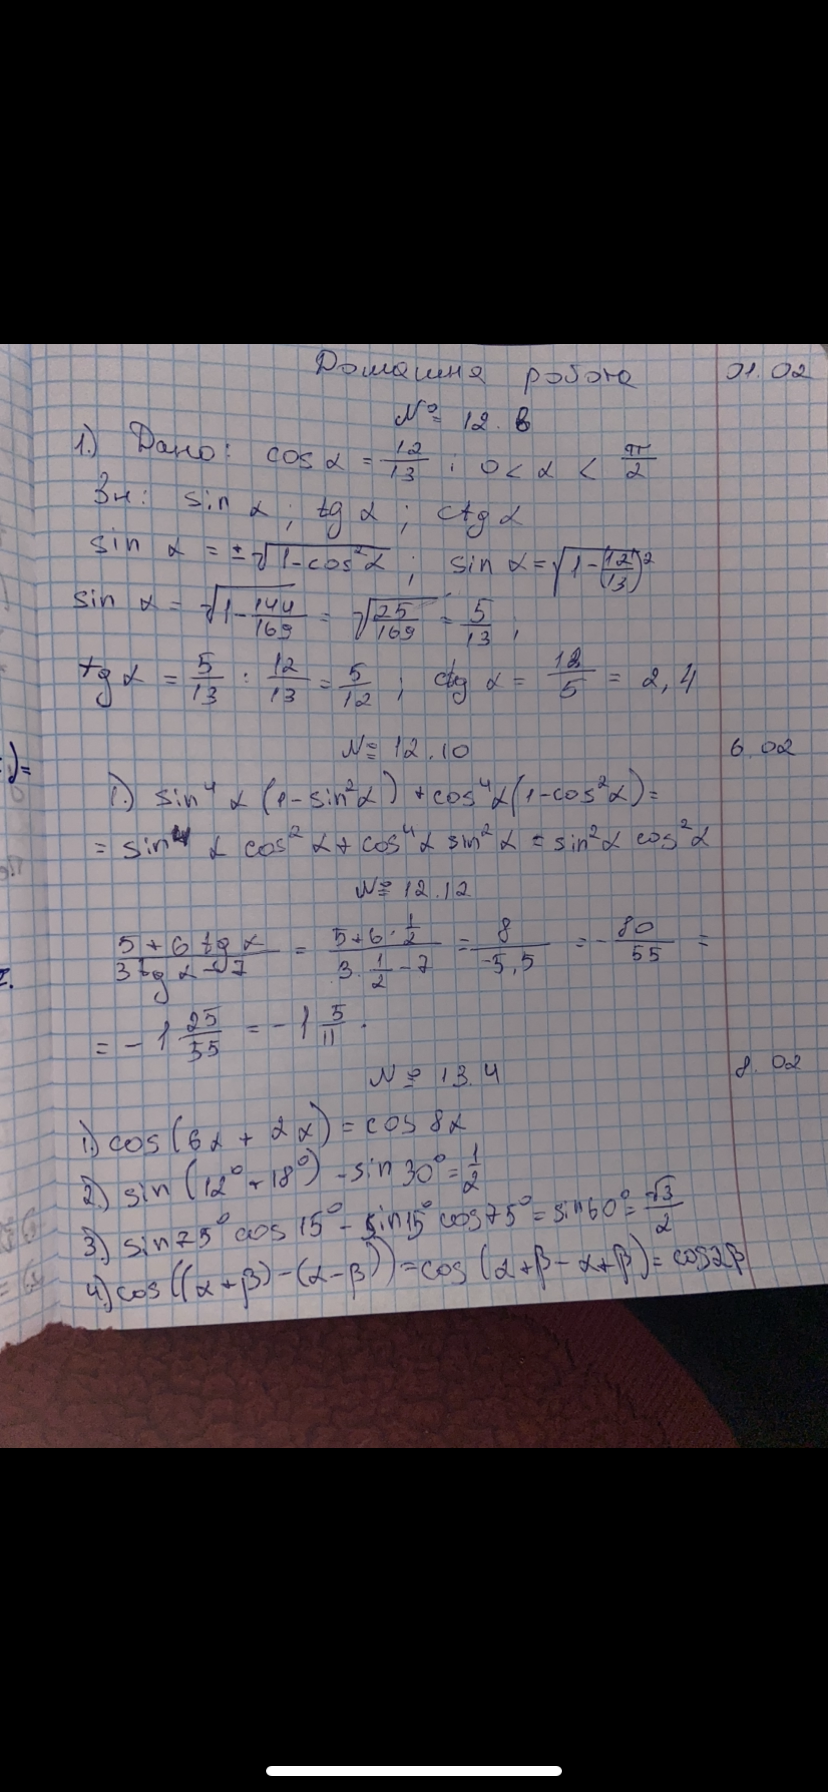 Домашня робота 01.02
№ 12.6
1.) Дано: cos α = 12/13 ; 0 < α < π/2
Зн: sin α ; tg α ; ctg α
sin α = ±√(1-cos²α) ; sin α = √(1-(12/13)²)
sin α = √(1-144/169) = √(25/169) = 5/13 ;
tg α = 5/13 : 12/13 = 5/12 ; ctg α = 12/5 = 2,4
)=
№ 12.10 6.02
1.) sin⁴ α (1-sin²α) + cos⁴α(1-cos²α) =
= sin⁴ α cos² α + cos⁴α sin²α = sin²α cos²α
№ 12.12
(5+6 tg α)/(3tg α - 7) = (5+6·1/2)/(3·1/2-7) = 8/-5,5 = -80/55 =
= -1 25/55 = -1 5/11 .
№ 13.4 8.02
1.) cos(6α + 2α) = cos 8α
2.) sin (12° + 18°) - sin 30° = 1/2
3.) sin 75° cos 15° - sin 15° cos 75° = sin 60° = √3/2
4.) cos((α+β)-(α-β)) = cos (α+β-α+β) = cos 2β